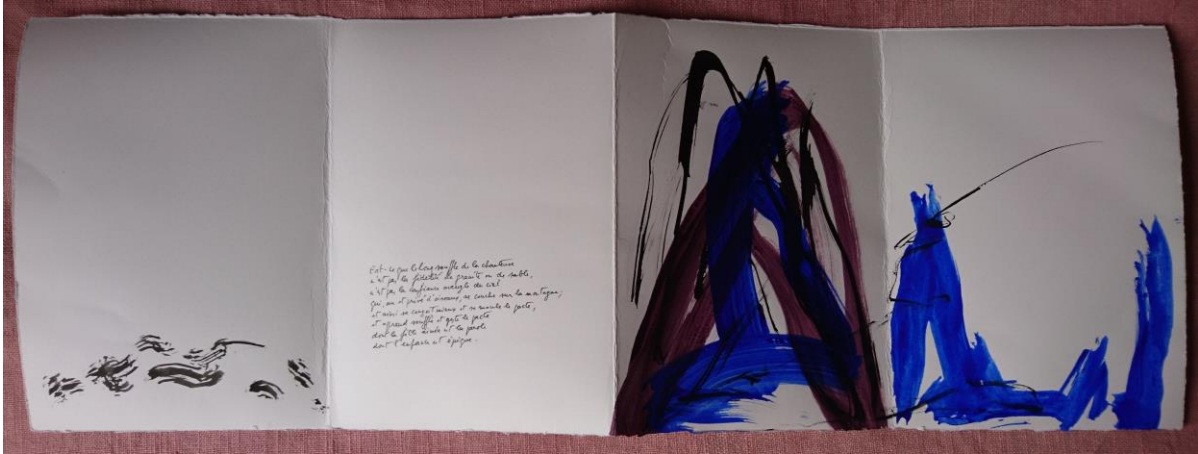 Est-ce que le long souffle de la chanteuse
n'est pas la fidélité du granite ou du sable,
n'est pas la confiance aveugle du ciel
qui, nu et privé d'oiseaux, se couche sur la montagne,
et ainsi se conçoit mieux et se le pacte,
et reprend souffle et geste le pacte
dont la fille aînée est la parole
dont l'enfance est épique.